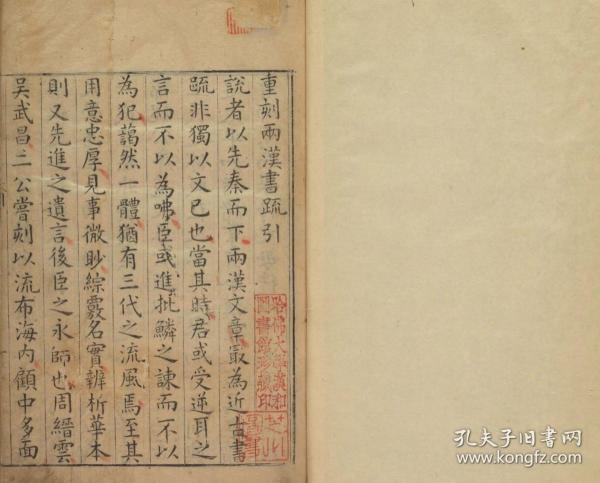 重刻兩漢書疏引
說者以先秦而下兩漢文章㝡為近古書
疏非獨以文已也當其時君或受逆耳之
言而不以為咈臣或進批鱗之諫而不以
為犯藹然一體猶有三代之流風焉至其
用意忠厚見事微眇綜覈名實辨析華本
則又先進之遺言後臣之永師也周縉雲
吳武昌二公嘗刻以流布海内顧中多面
哈佛大學漢和
圖書館珍藏印
孔夫子旧书网
www.kongfz.com